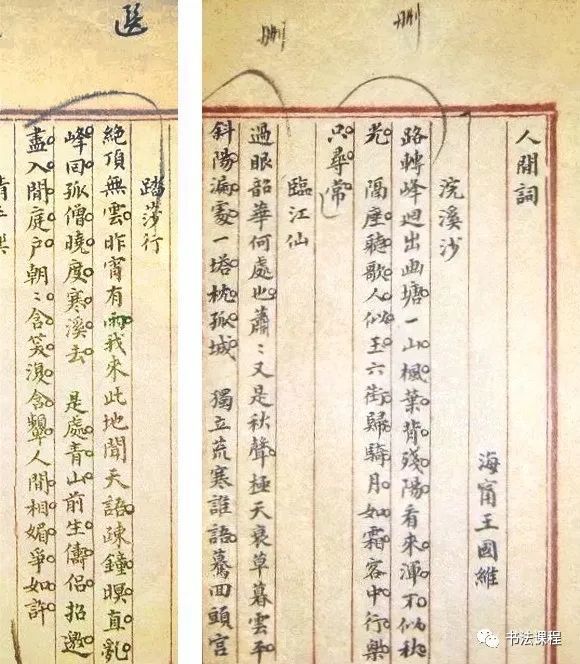 刪
刪
人間詞
海甯王國維
浣溪沙
路轉峰迴出畫塘一山楓葉背殘陽看來渾不似秋
光 隔座聽歌人似玉六街歸騎月如霜客中行樂
只尋常
臨江仙
過眼韶華何處也蕭〻又是秋聲極天衰草暮雲平
斜陽漏處一塔枕孤城 獨立荒寒誰語驀回頭宮
選
踏莎行
絕頂無雲昨宵有雨我來此地聞天語疎鐘暝直亂
峰回孤僧曉度寒溪去 是處青山前生儔侶招邀
盡入閒庭戶朝〻含笑復含顰人間相媚爭如許
书法课程